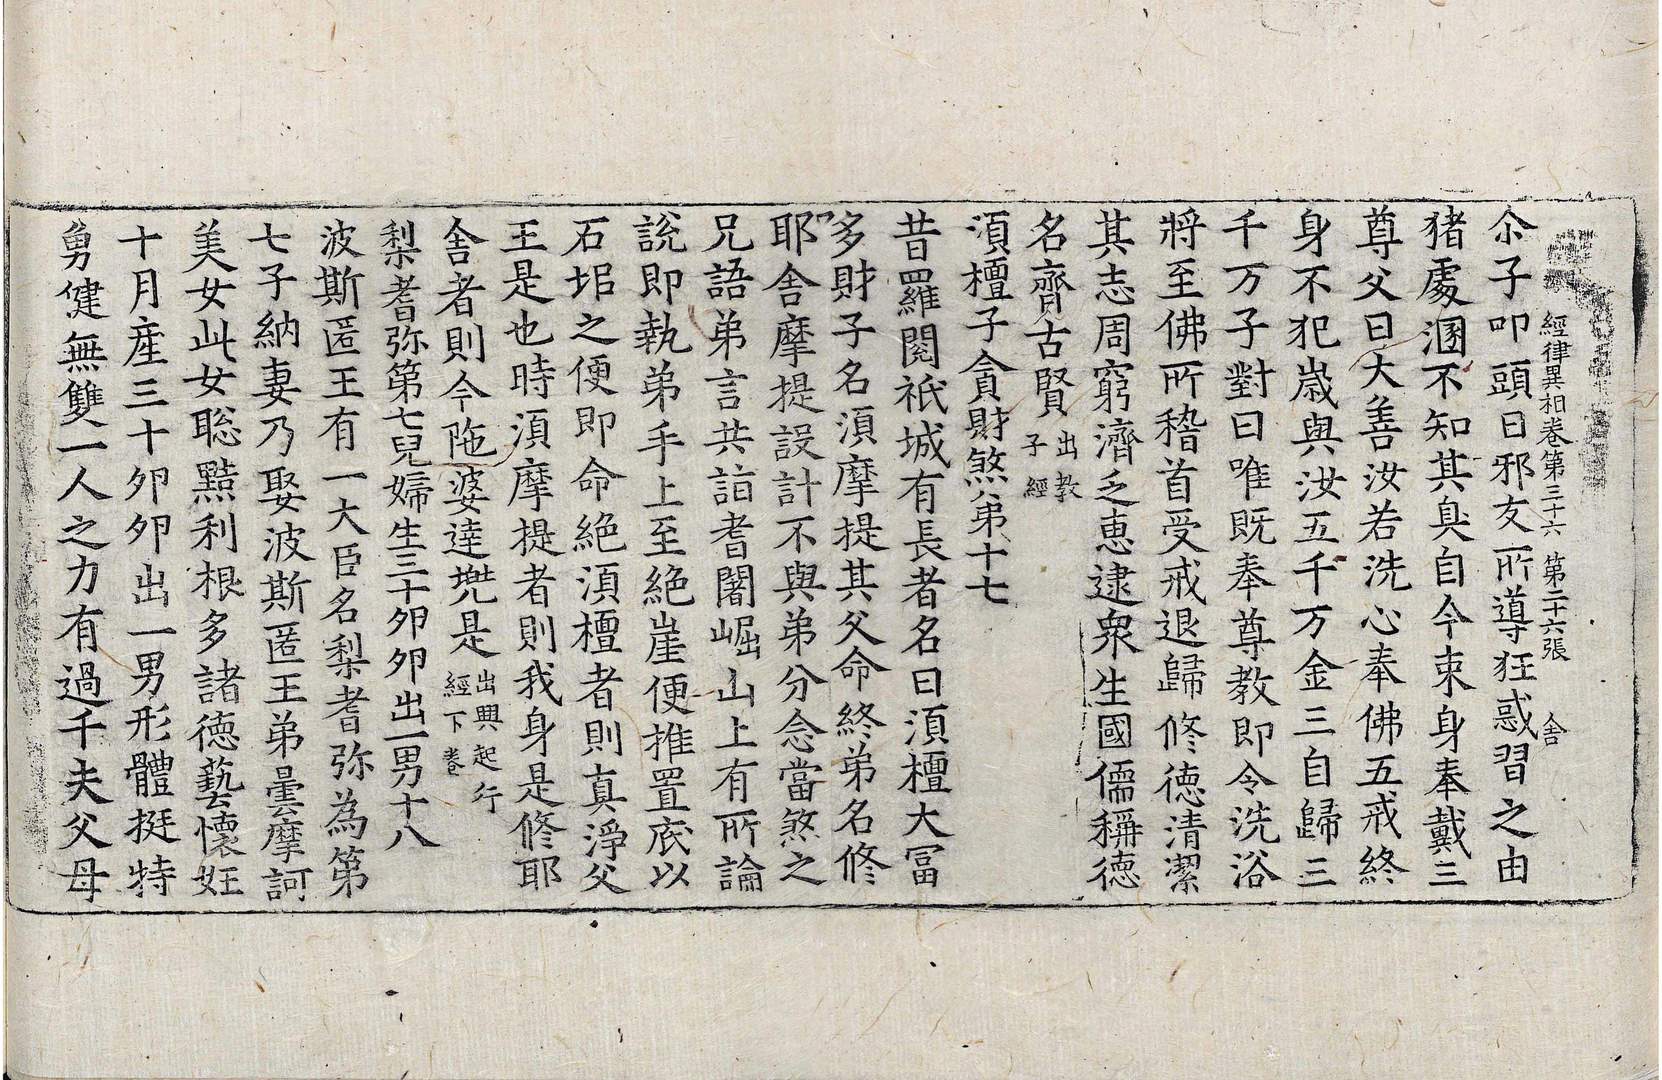 經律異相卷第三十六 第二十六張 舍
尒子叩頭曰邪友所導狂惑習之由
猪處溷不知其臭自今束身奉戴三
尊父曰大善汝若洗心奉佛五戒終
身不犯歲與汝五千万金三自歸三
千万子對曰唯既奉尊教即令洗浴
將至佛所稽首受戒退歸修德清潔
其志周窮濟乏惠逮衆生國儒稱德
名齊古賢出教子經
湏檀子貪財煞弟十七
昔羅閱祇城有長者名曰湏檀大冨
多財子名湏摩提其父命終弟名修
耶舍摩提設計不與弟分念當煞之
兄語弟言共詣耆闍崛山上有所論
說即執弟手上至絶崖便推置底以
石垖之便即命絶湏檀者則真淨父
王是也時湏摩提者則我身是修耶
舍者則今陁婆達兠是出興起行經下卷
梨耆弥第七兒婦生三十卵卵出一男十八
波斯匿王有一大臣名梨耆弥為第
七子納妻乃娶波斯匿王弟曇摩訶
美女此女聡黠利根多諸德藝懷妊
十月産三十卵卵出一男形體挺特
勇健無雙一人之力有過千夫父母